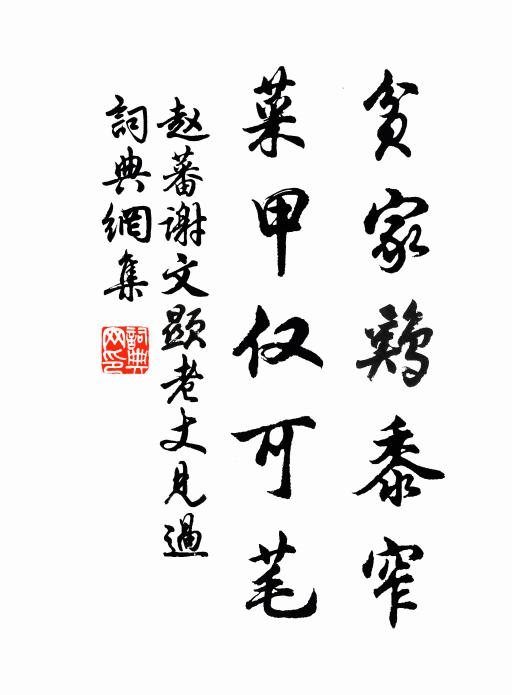 贫家鷄黍窄
菜甲仅可芼
赵蕃谢文顯老丈見過
詞典網集
詞典网印